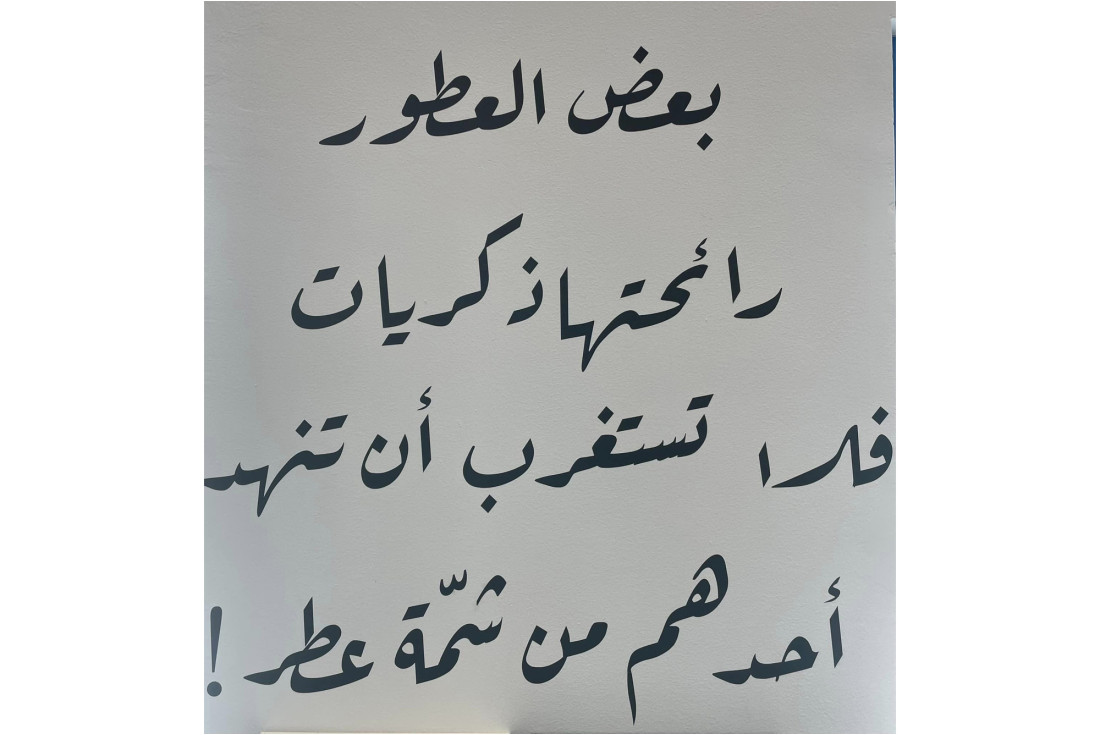 بعض العطور
رائحتها ذكريات
فلا تستغرب أن تنهد
أحدهم من شمّة عطر!